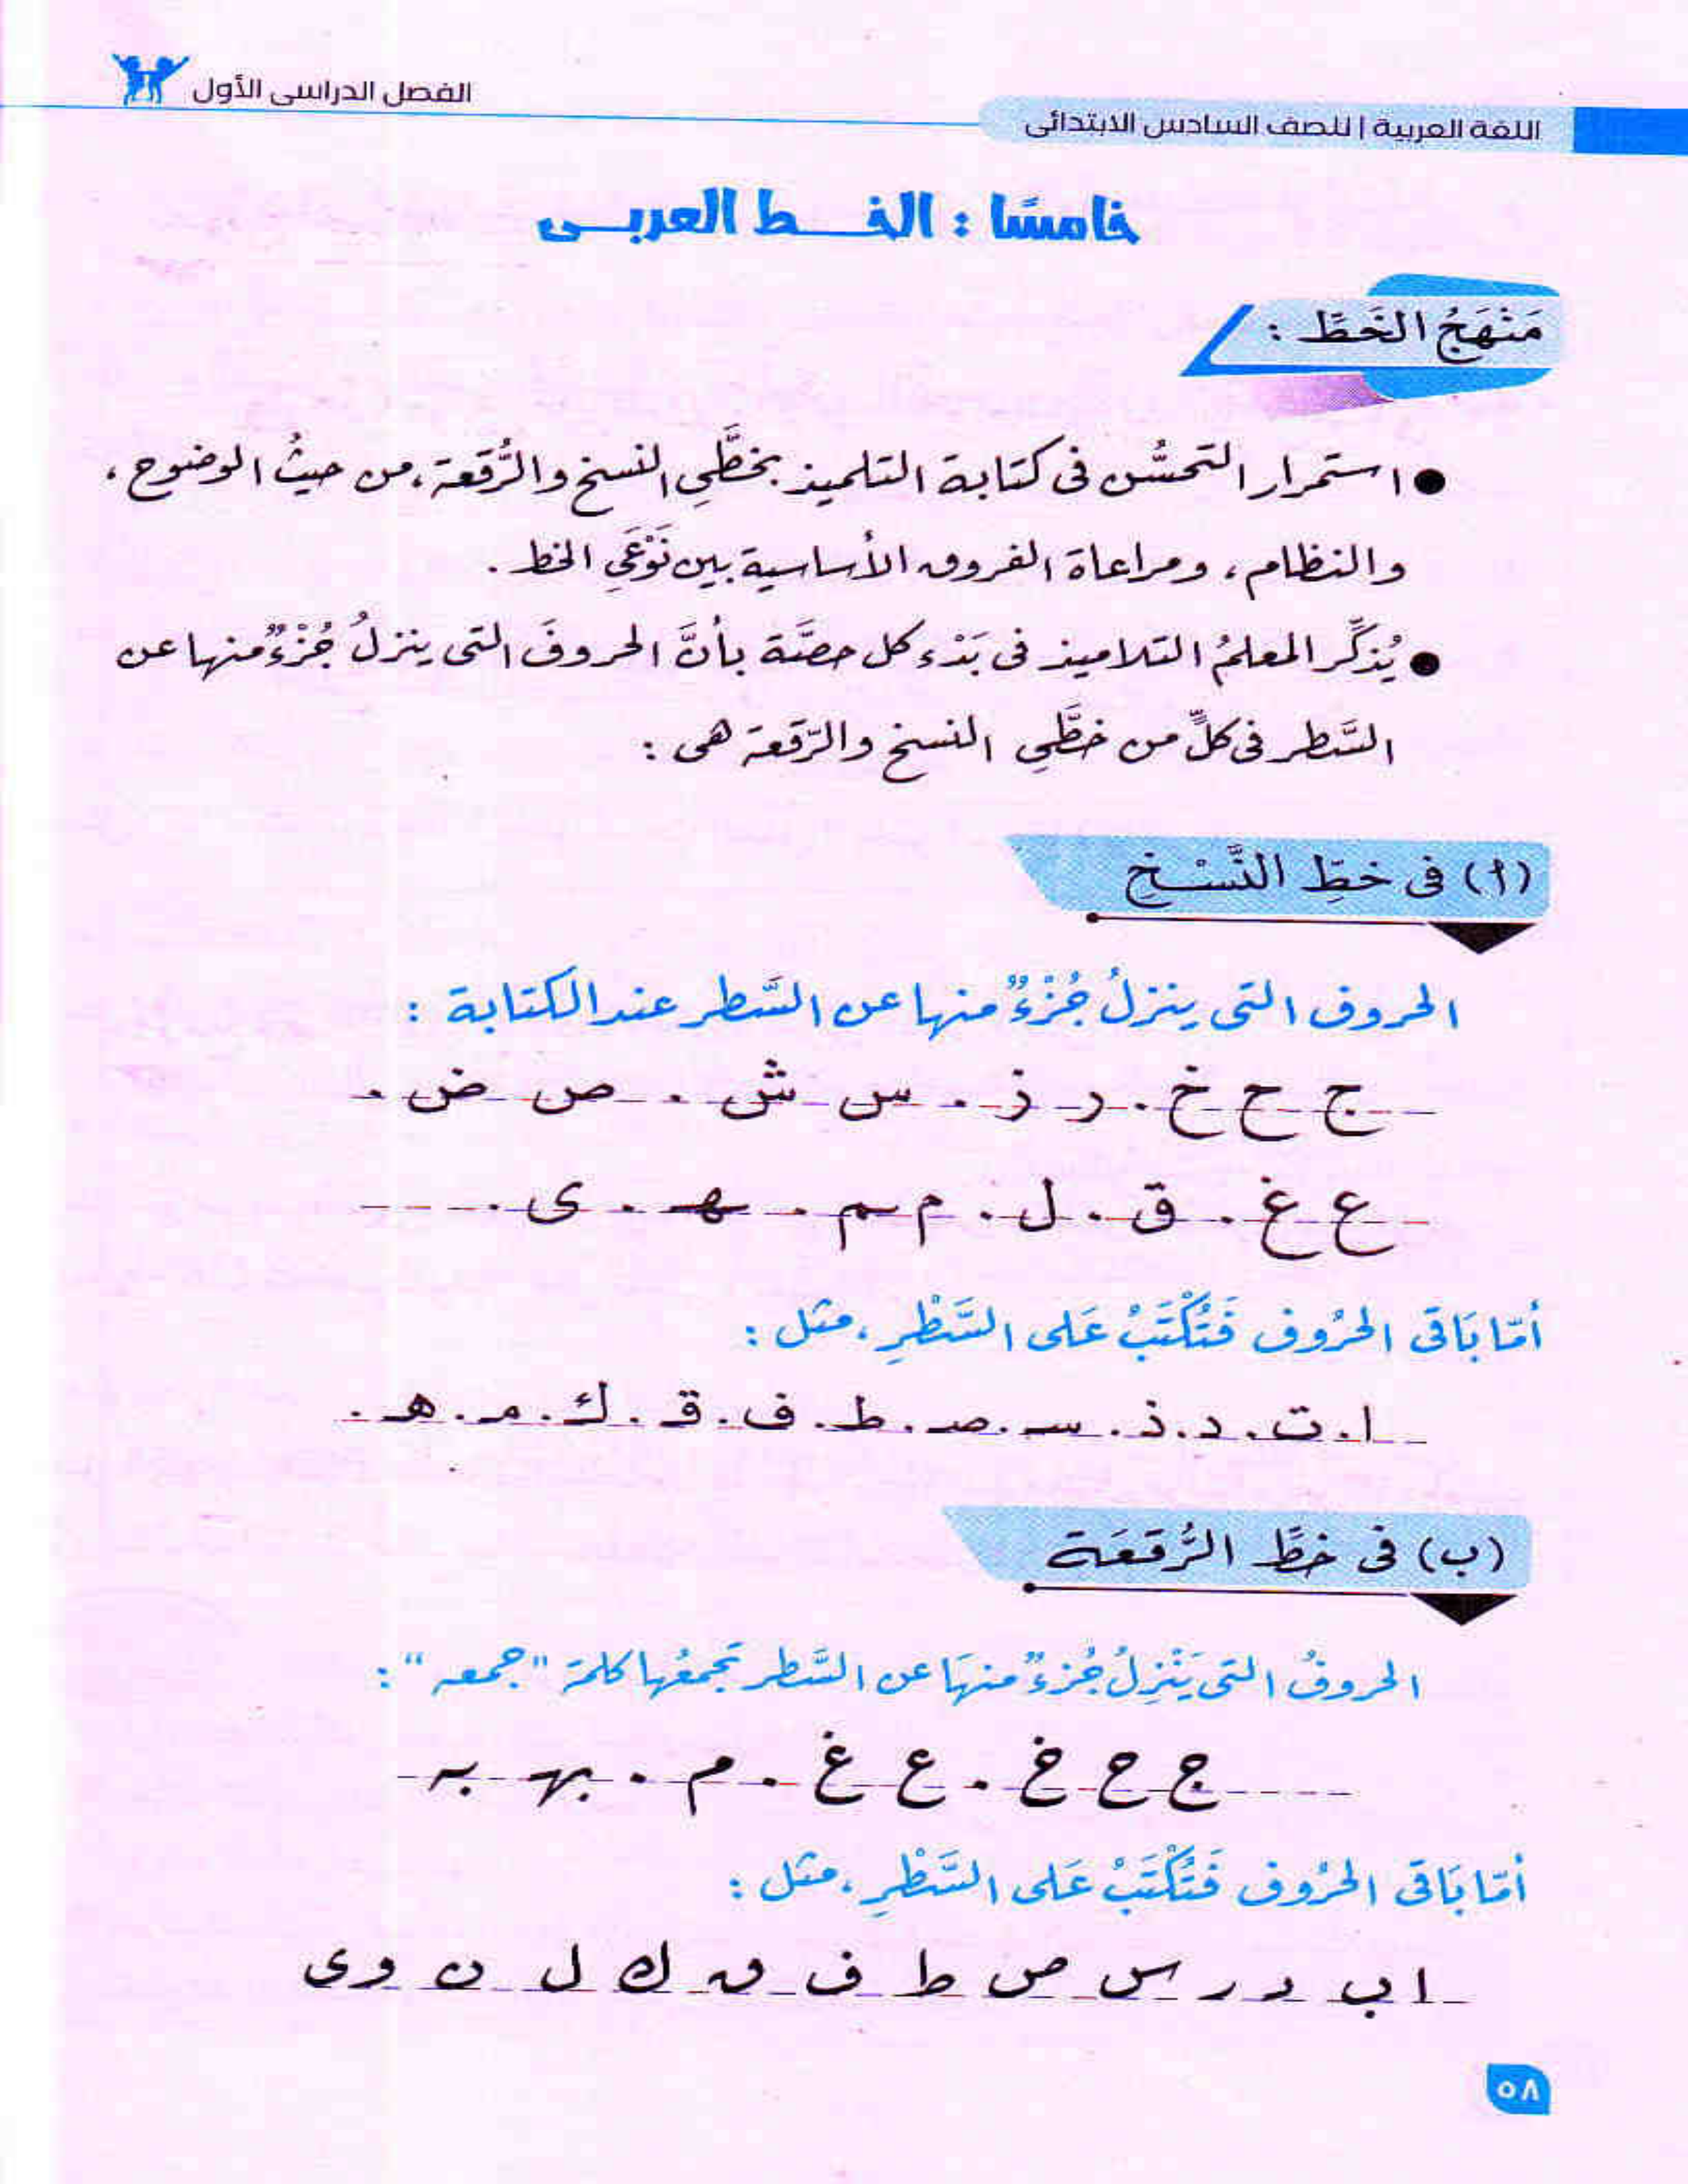 الفصل الدراسى الأول
اللغة العربية | للصف السادس الابتدائى
خامسًا : الخــط العربــى
مَنْهَجُ الخَطِّ :
● استمرار التحسُّن فى كتابة التلميذ بخطَّىِ النسخ والرُّقعة، من حيثُ الوضوح،
والنظام، ومراعاة الفروق الأساسية بين نَوْعَىِ الخط .
● يُذكِّر المعلمُ التلاميذ فى بَدْء كل حصَّة بأنَّ الحروفَ التى ينزلُ جُزْءٌ منها عن
السَّطر فى كلٍّ من خطَّىِ النسخ والرّقعة هى :
(أ) فى خطِّ النَّسْخِ
الحروف التى ينزلُ جُزْءٌ منها عن السَّطر عند الكتابة :
ج ح خ . ر ز . س ش . ص ض .
ع غ . ق . ل . م ـم . ـهـ . ى .
أمّا بَاقى الحرُوف فَتُكْتَبُ عَلى السَّطْرِ، مثل :
ا . ت . د . ذ . سـ . صـ . ط . ف . قـ . ك . مـ . هـ .
(ب) فى خطِّ الرُّقعَة
الحروفُ التى يَنْزِلُ جُزءٌ منهَا عن السَّطر تجمعُها كلمة "جمعه" :
ج ح خ . ع غ . م . ـهـ ـه
أمّا بَاقى الحرُوف فَتُكْتَبُ عَلى السَّطْرِ، مثل :
ا ب د ر س ص ط ف ق ك ل ن و ى
٥٨